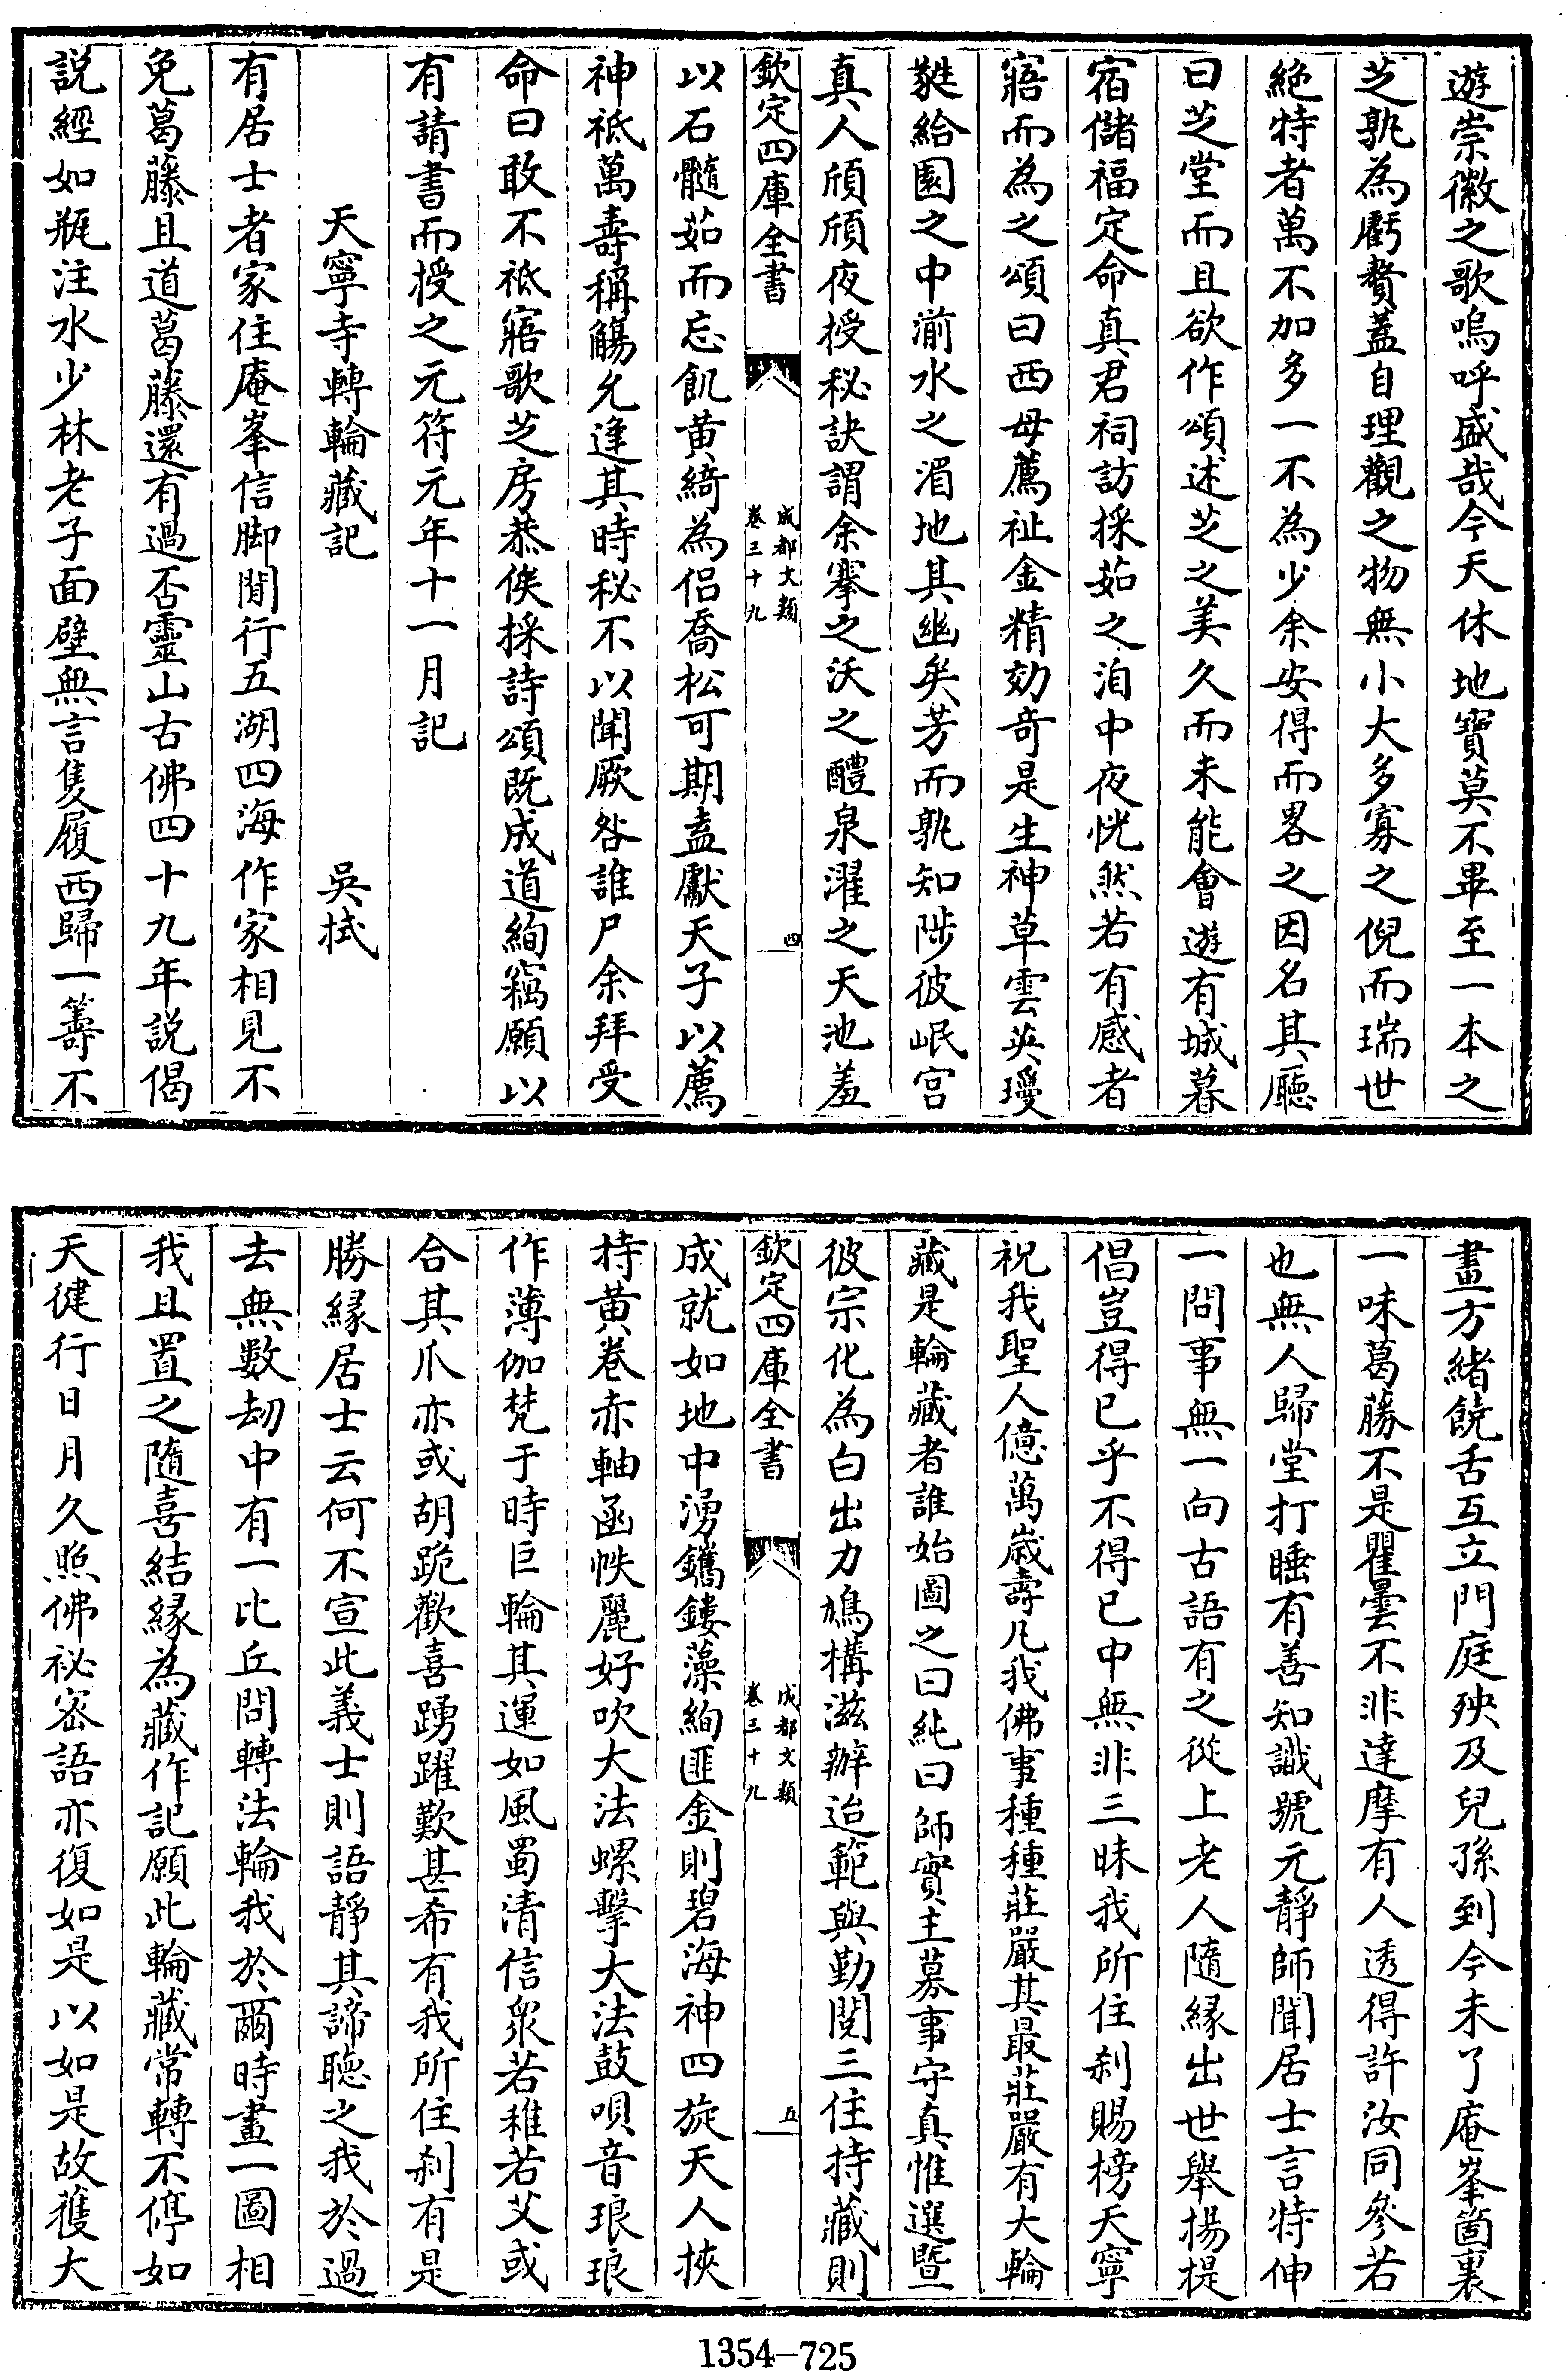 遊崇徽之歌嗚呼盛哉今天休地寶莫不畢至一本之
芝孰為虧贅蓋自理觀之物無小大多寡之倪而瑞世
絶特者萬不加多一不為少余安得而畧之因名其廳
曰芝堂而且欲作頌述芝之美久而未能會遊有城暮
宿儲福定命真君祠訪採茹之洎中夜恍然若有感者
寤而為之頌曰西母薦祉金精効奇是生神草雲英璦
㽔給園之中湔水之湄地其幽矣芳而孰知陟彼岷宫
真人頎頎夜授秘訣謂余搴之沃之醴泉濯之天池羞
欽定四庫全書
成都文類
卷三十九
四
以石髓茹而忘飢黄綺為侣喬松可期盍獻天子以薦
神祇萬壽稱觴允逢其時秘不以聞厥咎誰尸余拜受
命曰敢不祗寤歌芝房恭俟採詩頌既成道絢竊願以
有請書而授之元符元年十一月記
天寧寺轉輪藏記 吳拭
有居士者家住庵峯信脚閒行五湖四海作家相見不
免葛藤且道葛藤還有過否靈山古佛四十九年説偈
説經如瓶注水少林老子面壁無言隻履西歸一籌不
畫方緒饒舌互立門庭殃及兒孫到今未了庵峯箇裏
一味葛藤不是瞿曇不非達摩有人透得許汝同參若
也無人歸堂打睡有善知識號元靜師聞居士言特伸
一問事無一向古語有之從上老人隨緣出世舉揚提
倡豈得已乎不得已中無非三昧我所住刹賜榜天寧
祝我聖人億萬歳壽凡我佛事種種莊嚴其最莊嚴有大輪
藏是輪藏者誰始圖之曰純曰師實主募事守真惟選暨
彼宗化為白出力鳩構滋辦迨範與勤閲三住持藏則
欽定四庫全書
成都文類
卷三十九
五
成就如地中湧鑴鏤藻絢匪金則碧海神四旋天人挾
持黄卷赤軸函帙麗好吹大法螺擊大法鼓唄音琅琅
作薄伽梵于時巨輪其運如風蜀清信衆若稚若艾或
合其爪亦或胡跪歡喜踴躍歎甚希有我所住刹有是
勝緣居士云何不宣此義士則語靜其諦聽之我於過
去無數劫中有一比丘問轉法輪我於爾時畫一圖相
我且置之隨喜結緣為藏作記願此輪藏常轉不停如
天徤行日月久照佛祕密語亦復如是以如是故獲大
1354-725